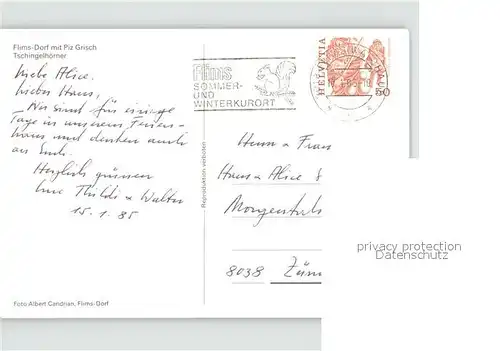 Flims-Dorf mit Piz Grisch
Tschingelhörner
Liebe Alice,
lieber Hans,
Wir sind für einige
Tage in unserem Ferien-
haus und denken auch
an Euch.
Herzlich grüssen
Eure Thildi & Walter
15.1.85
Foto Albert Candrian, Flims-Dorf
Reproduktion verboten
Flims
SOMMER-
UND
WINTERKURORT
HELVETIA
50
Herrn & Frau
Hans & Alice
8038 Zürich
privacy protection
Datenschutz